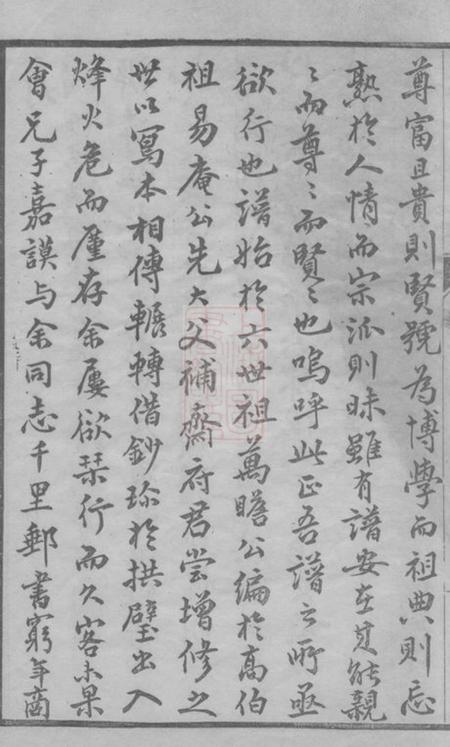 尊富且貴則賢號為博學而祖典則忘
熟於人情而宗派則昧雖有譜安在其能親
〻而尊〻而賢〻也嗚呼此正吾譜之所亟
欲行也譜始於六世祖萬瞻公編於高伯
祖易庵公先大父補齋府君嘗增修之
世以寫本相傳輾轉借鈔珍於拱璧出入
烽火危而廑存余屢欲栞行而久客未果
會兄子嘉謨与余同志千里郵書窮年商